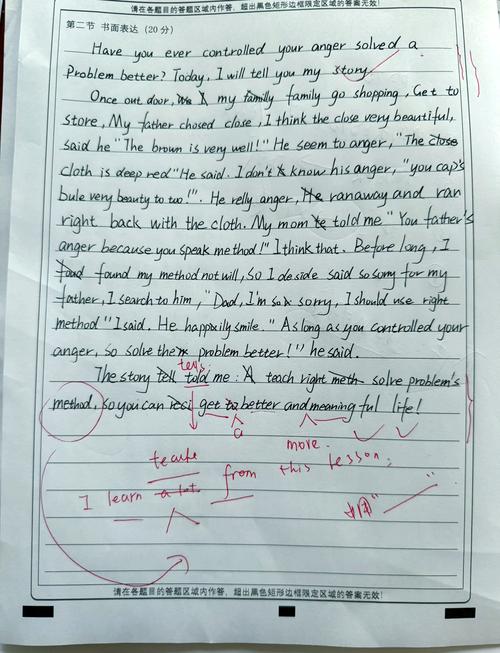 请在各题目的答题区域内作答，超出黑色矩形边框限定区域的答案无效！
第二节 书面表达（20分）
Have you ever controlled your anger solved a
Problem better? Today, I will tell you my story
Once out door, We my family family go shopping, Get to
store, My father chosed close, I think the close very beautiful,
said he "The brown is very well!" He seem to anger, "The close
cloth is deep red" He said. I don't know his anger, "you cap's
bule very beauty to too!". He relly anger, He ranaway and ran
right back with the cloth. My mom told me "You father's
anger because you speak method!" I think that. Before long, I
found my method not will, So I deside said so sorry for my
father, I search to him, "Dad, I'm so sorry, I should use right
method" I said. He happily smile. "As long as you controlled your
anger, so solve the problem better!" he said.
tells
The story tell told me: A teach right meth solve problem's
method, so you can get to better and meaning ful life!
a
more.
teache
I learn a lot from this lesson.
请在各题目的答题区域内作答，超出黑色矩形边框限定区域的答案无效！